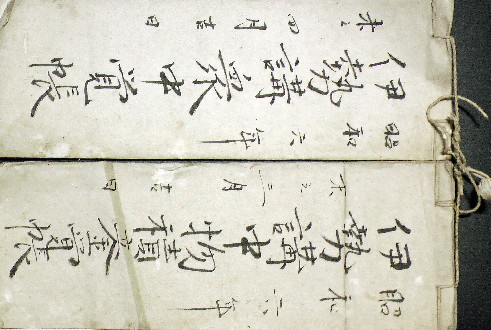 昭和六年
伊勢講中
覚帳
三月吉日
昭和六年
伊勢講衆中覚帳
未ノ四月吉日